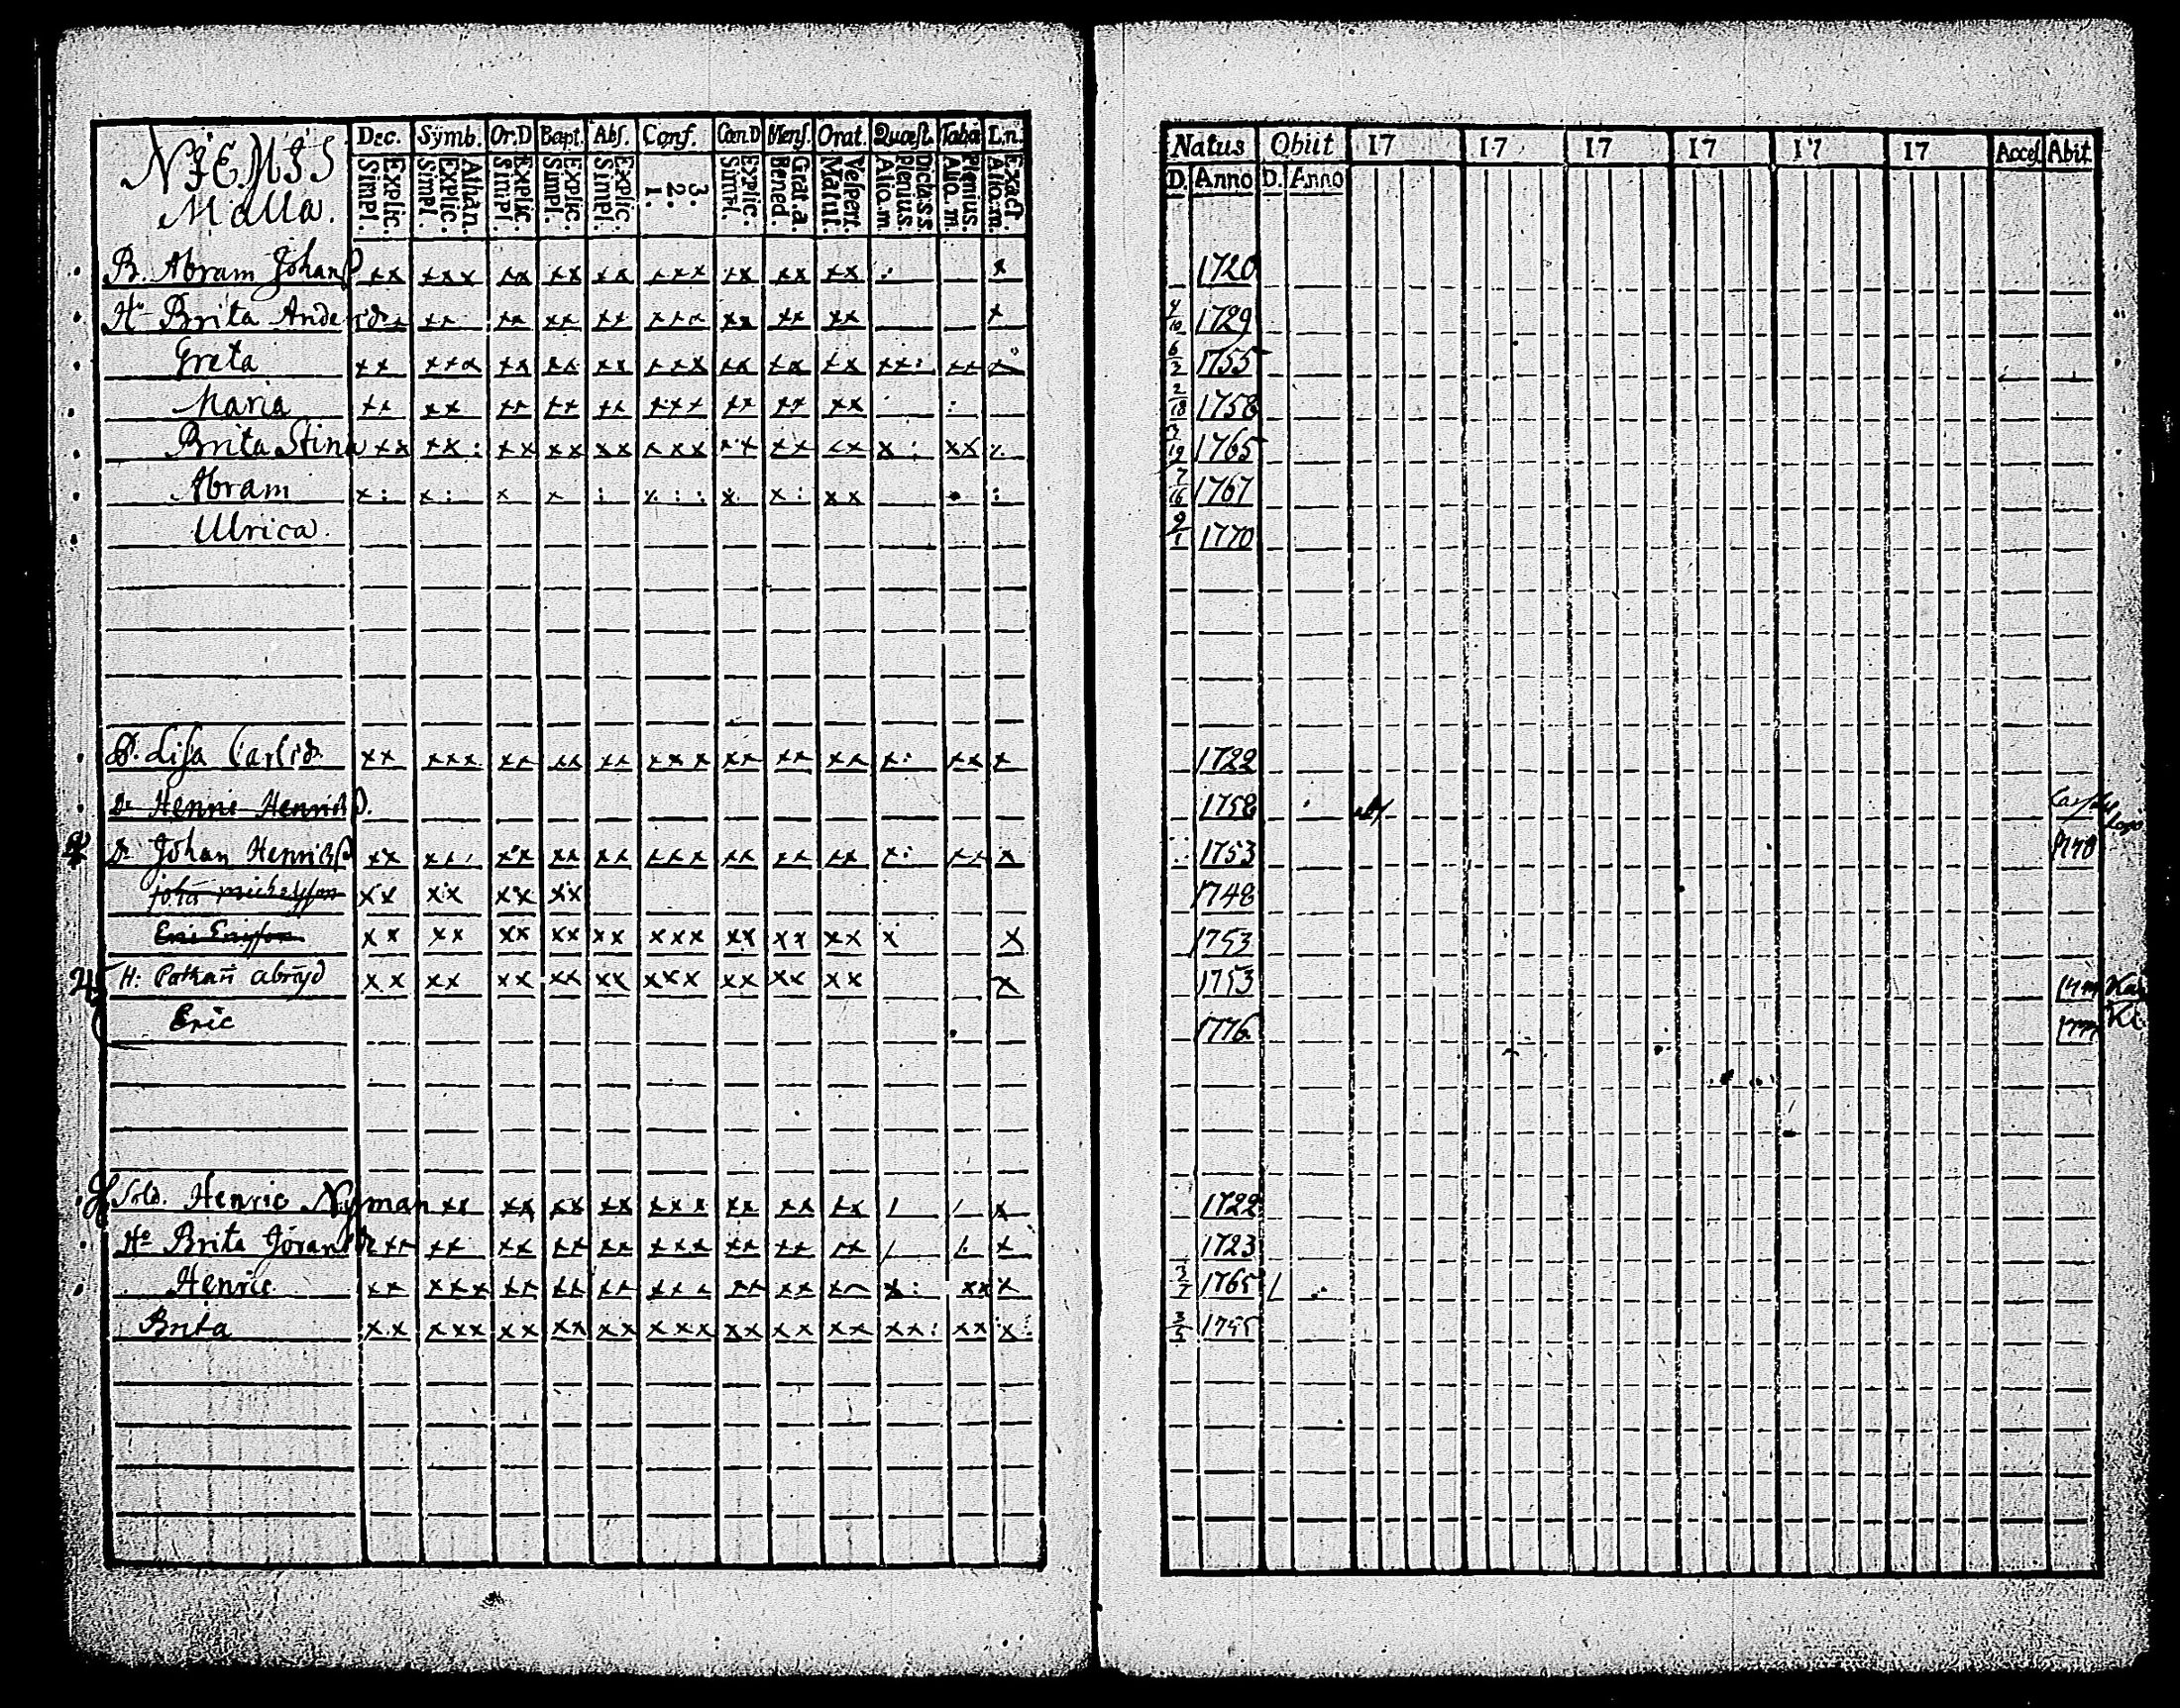 NIEMIS
Malla.
Dec. Symb. Or.D Bapt. Abs. Conf. Cœn.D Mens. Orat. Quæst. Taba L.n.
Explic. Simpl. Athan. Explic. Simpl. Explic. Simpl. Explic. Simpl. Explic. Simpl. 3. 2. 1. Explic. Simpl. Grat. a. Bened. Vespert. Matut. Dicta s.s. Plenius. Alio. m. Plenius. Alio. m. Exact. Alio. m.
Natus Obiit 17 17 17 17 17 17 Acces. Abit
D. Anno D. Anno
B. Abram Johans xx xxx xx xx xx xxx xx xx xx : x 1720
Ho Brita Andersdr xx xx xx xx xxx xx xx xx x 4/10 1729
Greta xx xxx xx xx xx xxx xx xx xx xx: xx x 6/3 1755
Maria xx xx xx xx xx xxx xx xx xx : 2/18 1758
Brita Stina xx xx: xx xx xx xxx xx xx xx x: xx x 3/19 1765
Abram x: x: x x : x:: x x: xx : 7/16 1767
Ulrica. 9/1 1770
D. Lisa Carlsdr xx xxx xx xx xx xxx xx xx xx x: xx x 1722
Dr Henric Henrics. 1758
Dr Johan Henrics xx xx xx xx xx xxx xx xx xx x: xx x 1753
joh michelsson xx xx xx xx 1748
Eric Ericsson xx xx xx xx xx xxx xx xx xx x x 1753
H: abrasd xx xx xx xx xx xxx xx xx xx x 1753
Eric 1776
Sold. Henric Nyman xx xx xx xx xxx xx xx xx / / x 1722
Ho Brita Jöransdr xx xx xx xx xx xxx xx xx xx / /. x 1723
Henric xx xxx xx xx xx xxx xx xx xx x: xx x 3/7 1765
Brita xx xxx xx xx xx xxx xx xx xx xx: xx x 3/5 1755